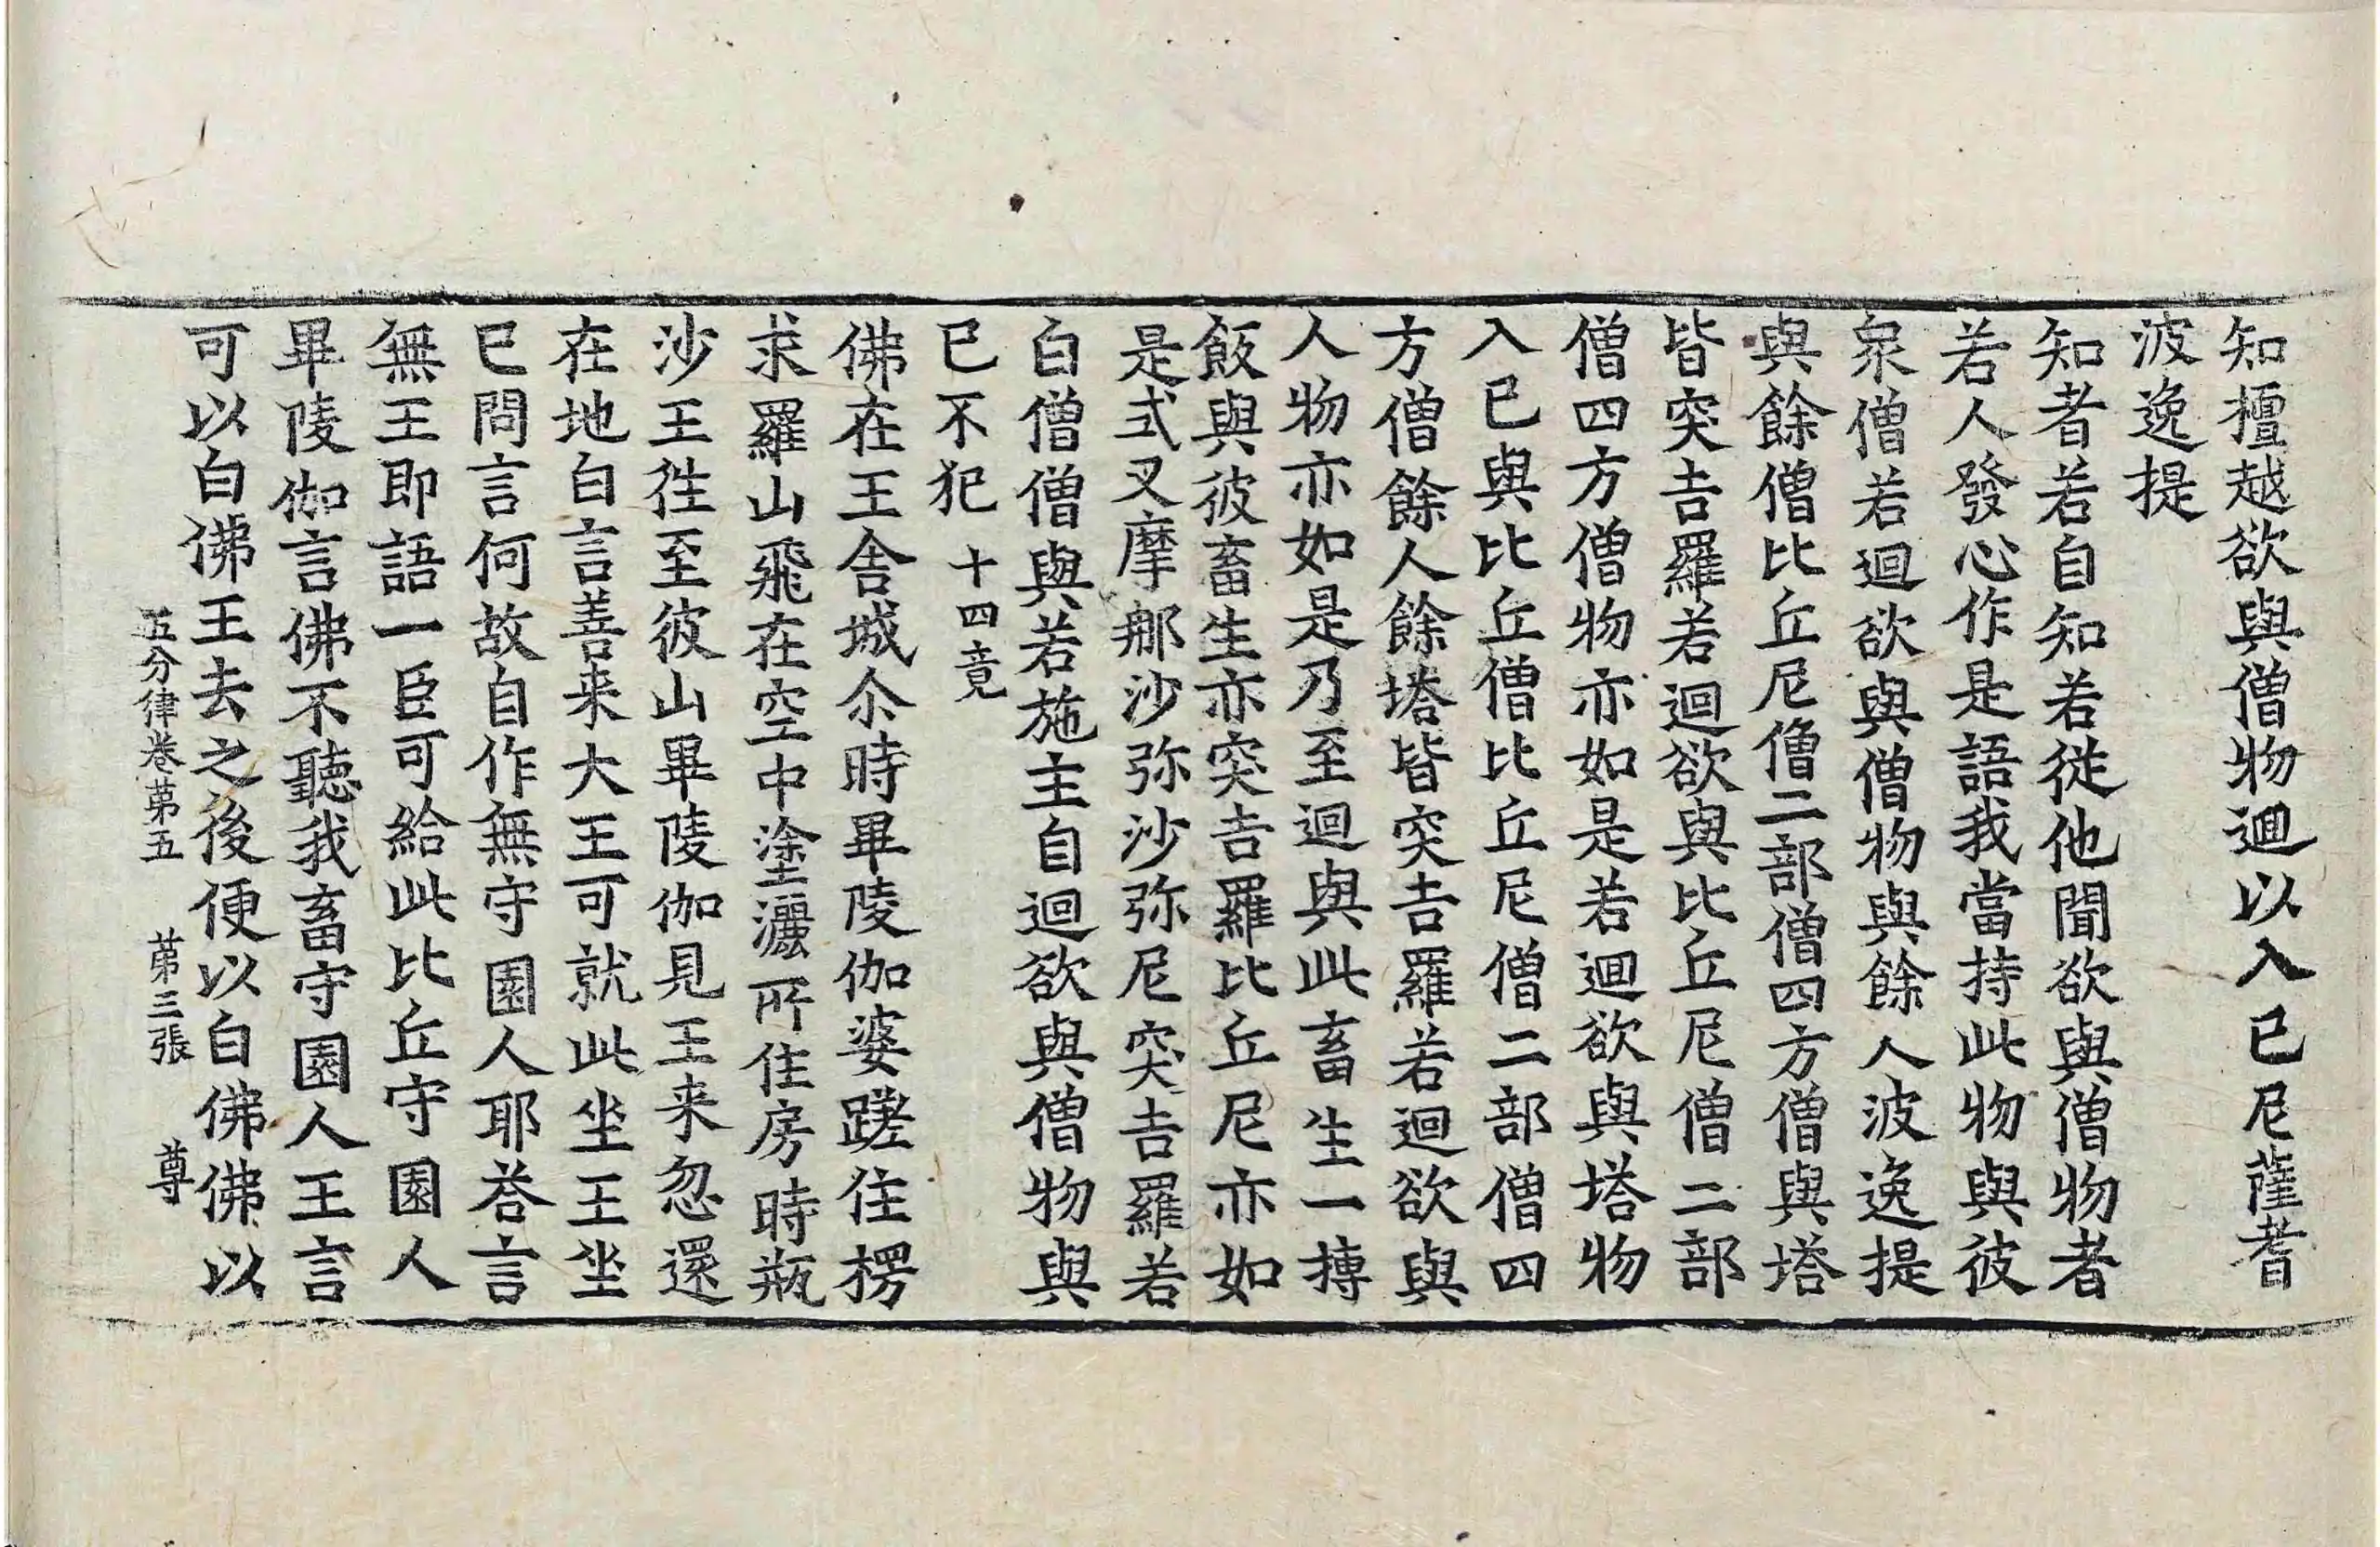 知擅越欲與僧物迴以入已尼薩耆
波逸提
知者若自知若従他聞欲與僧物者
若人發心作是語我當持此物與彼
衆僧若迴欲與僧物與餘人波逸提
與餘僧比丘尼僧二部僧四方僧與塔
皆突吉羅若迴欲與比丘尼僧二部
僧四方僧物亦如是若迴欲與塔物
入已與比丘僧比丘尼僧二部僧四
方僧餘人餘塔皆突吉羅若迴欲與
人物亦如是乃至迴與此畜生一摶
飯與彼畜生亦突吉羅比丘尼亦如
是式叉摩那沙弥沙弥尼突吉羅若
白僧僧與若施主自迴欲與僧物與
已不犯 十四竟
佛在王舍城尒時畢陵伽婆蹉住楞
求羅山飛在空中塗灑所住房時瓶
沙王徃至彼山畢陵伽見王来忽還
在地白言善来大王可就此坐王坐
已問言何故自作無守園人耶荅言
無王即語一臣可給此比丘守園人
畢陵伽言佛不聽我畜守園人王言
可以白佛王去之後便以白佛佛以
五分律卷苐五 苐三張 尊